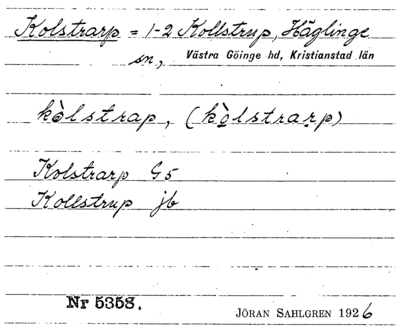 Kolstrarp = 1-2 Kollstrup, Häglinge
sn, Västra Göinge hd, Kristianstad län
kòlstrap, (kòlstrarp)
Kolstrarp G5
Kollstrup jb
Nr 5358.
JÖRAN SAHLGREN 1926